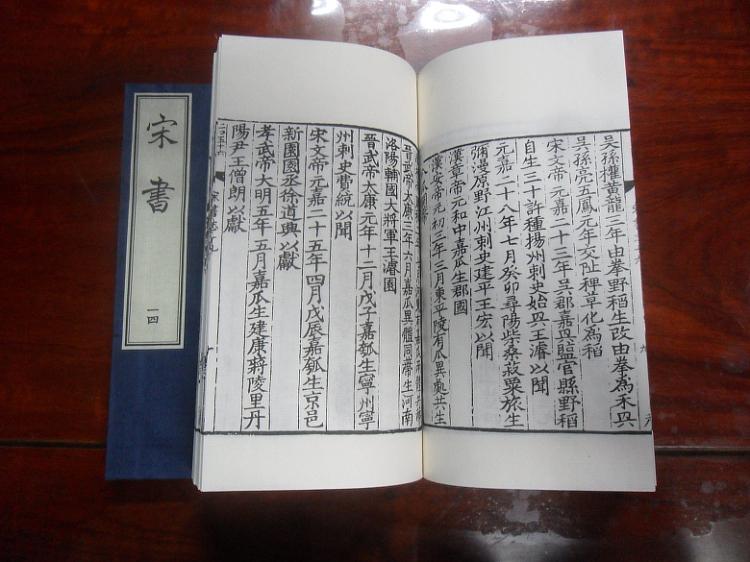 宋書
一四
吳孫權黃龍三年由拳野稻生改由拳為禾興
吳孫亮五鳳元年交阯稗草化為稻
宋文帝元嘉二十三年吳郡嘉興鹽官縣野稻
自生三十許種揚州刺史始興王濬以聞
元嘉二十八年七月癸卯尋陽柴桑菽粟旅生
彌漫原野江州刺史建平王宏以聞
漢章帝元和中嘉瓜生郡國
漢安帝元初三年三月東平陵有瓜異處共生
八瓜同蔕
晉武帝太康三年六月嘉瓜異體同蔕生河南
洛陽輔國大將軍王濬園
晉武帝太康元年十二月戊子嘉瓠生寧州寧
州刺史費統以聞
宋文帝元嘉二十五年四月戊辰嘉瓠生京邑
新園園丞徐道興以獻
孝武帝大明五年五月嘉瓜生建康蔣陵里丹
陽尹王僧朗以獻